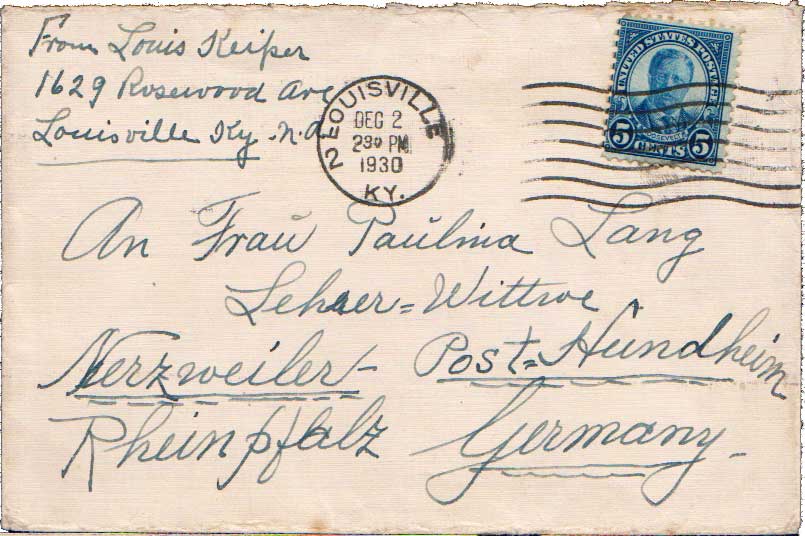 From Louis Keiper
1629 Rosewood Ave
Louisville Ky. N.A.
LOUISVILLE 2
DEC 2
230 PM
1930
KY.
UNITED STATES POSTAGE
ROOSEVELT
5 5
CENTS
An Fraŭ Paŭlina Lang
Lehrer=Wittwe
Nerzweiler/- Post=Hŭndheim
Rheinpfalz Germany-